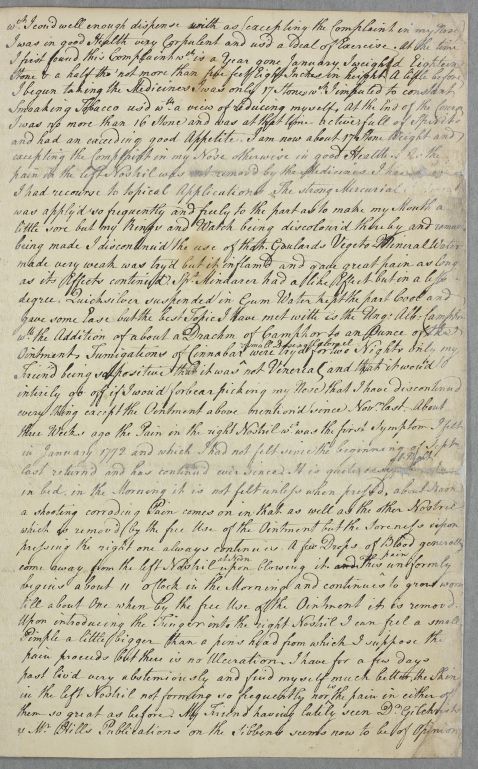 wch I cou'd well enough dispense with as (excepting the Complaint in my Nose)
I was in good Health very Corpulent and us'd a deal of Exercise. At the time
I first found this Complaint wch is a Year gone January I weigh'd Eighteen
Stone & a half tho' not more than five feet Eight Inches in height. A little before
I begun taking the Medicines I was only 17 Stone wch I imputed to constant
Smoaking Tobacco us'd wth a view of reducing myself. At the End of the Course
I was no more than 16 Stone and was at that time rather full of Spirits
and had an exceeding good Appetite. I am now about 17 Stone Weight and
excepting the Complaint in my Nose otherwise in good Health. the
pain in the left Nostril was not remov'd by the Medicines I
I had recourse to Topical Applications. The strong Mercurial
was apply'd so frequently and freely to the part as to make my Mouth a
little sore but my Rings and Watch being discolour'd thereby and
being made I discontinued the use of that. Goulards Vegeto Mineral Water
made very weak was try'd but it inflam'd and gave great pain as long
as its Effects continued. Spr. Mindarer had a like Effect but in a less
degree. Quicksilver suspended in Gum Water kept the part Cool and
gave some Ease but the best Topic I have met with is the Ung: Alb: Camphor
wth the Addition of about a Drachm of Camphor to an Ounce of the
Ointment. Fumigations of Cinnabar were try'd for two Nights only my
Friend being so positive that it was not Venereal and that it wou'd
entirely go off if I wou'd forbear picking my Nose that I have discontinued
every thing except the Ointment above mention'd since Novr. last. About
three Weeks ago the Pain in the right Nostril wch was the first Symptom I felt
in January 1772 and which I had not felt since the beginning of Septr.
last return'd and has continued ever since. It is quite easy at Night
in bed, in the Morning it is not felt unless when press'd, about Noon
a shooting corroding Pain comes on in that as well as the other Nostril
which is remov'd by the free Use of the Ointment but the Soreness upon
pressing the right one always continues. A few Drops of Blood generally
come away from the left Nostril at Noon upon blowing it and this pain uniformly
begins about 11 o'Clock in the Morning and continues to grow worse
till about One when by the free Use of the Ointment it is remov'd.
Upon introducing the Finger into the right Nostril I can feel a small
Pimple a little bigger than a pins head from which I suppose the
pain proceeds but there is no Ulceration. I have for a few days
past liv'd very abstemiously and find myself much better the Skin
in the left Nostril not forming so frequently nor is the pain in either of
them so great as before. My Friend having lately seen Dr. Gilchrists
& Mr. Hills Publications on the Sibbens seems now to be of Opinion